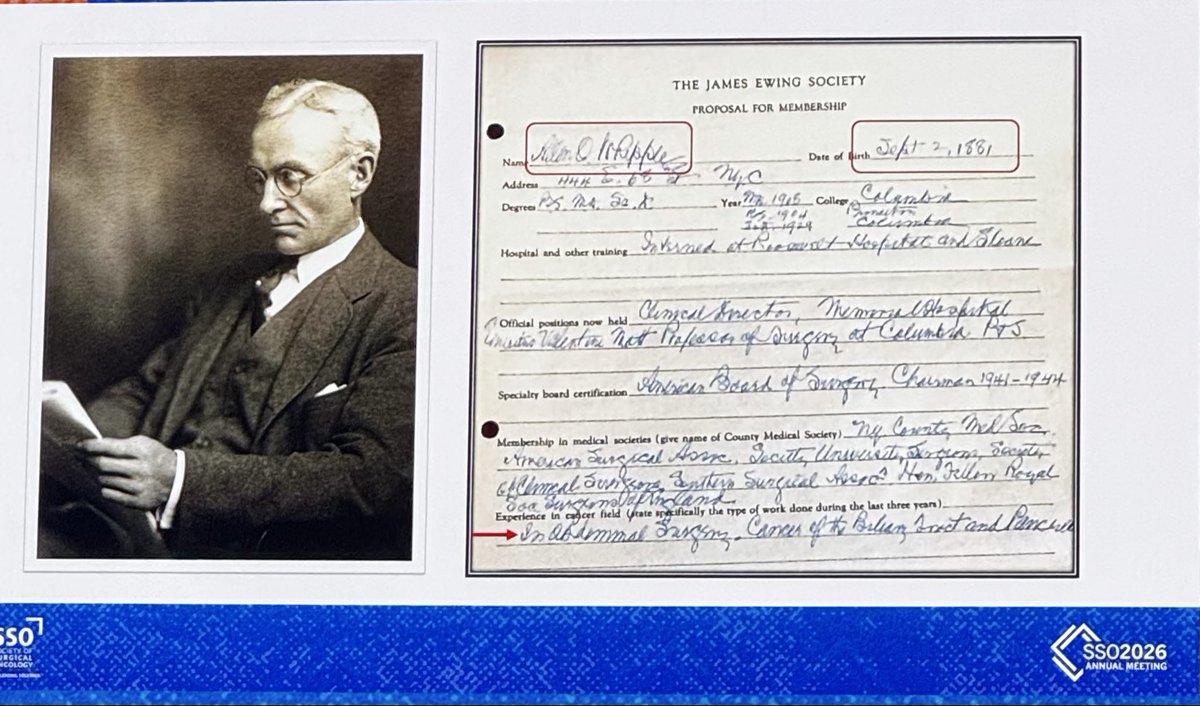 THE JAMES EWING SOCIETY
PROPOSAL FOR MEMBERSHIP
Name Allen O Whipple Date of Birth Sept 2, 1881
Address 444 E. 68 St NYC
Degrees Year 1904 College Columbia
Princeton
Columbia
Hospital and other training Interned at Roosevelt Hospital and Sloane
Official positions now held Clinical Director, Memorial Hospital
Emeritus Valentine Mott Professor of Surgery at Columbia P & S
Specialty board certification American Board of Surgery Chairman 1941-1944
Membership in medical societies (give name of County Medical Society) NY County Med Soc
American Surgical Assoc. Society University Surgeons, Society
of Clinical Surgeons, Southern Surgical Assoc Hon. Fellow Royal
Soc Surgeons of England
Experience in cancer field (state specifically the type of work done during the last three years)
In Abdominal Surgery. Cancer of the Biliary Tract and Pancreas
SSO
SOCIETY OF
SURGICAL
ONCOLOGY
SSO2026
ANNUAL MEETING